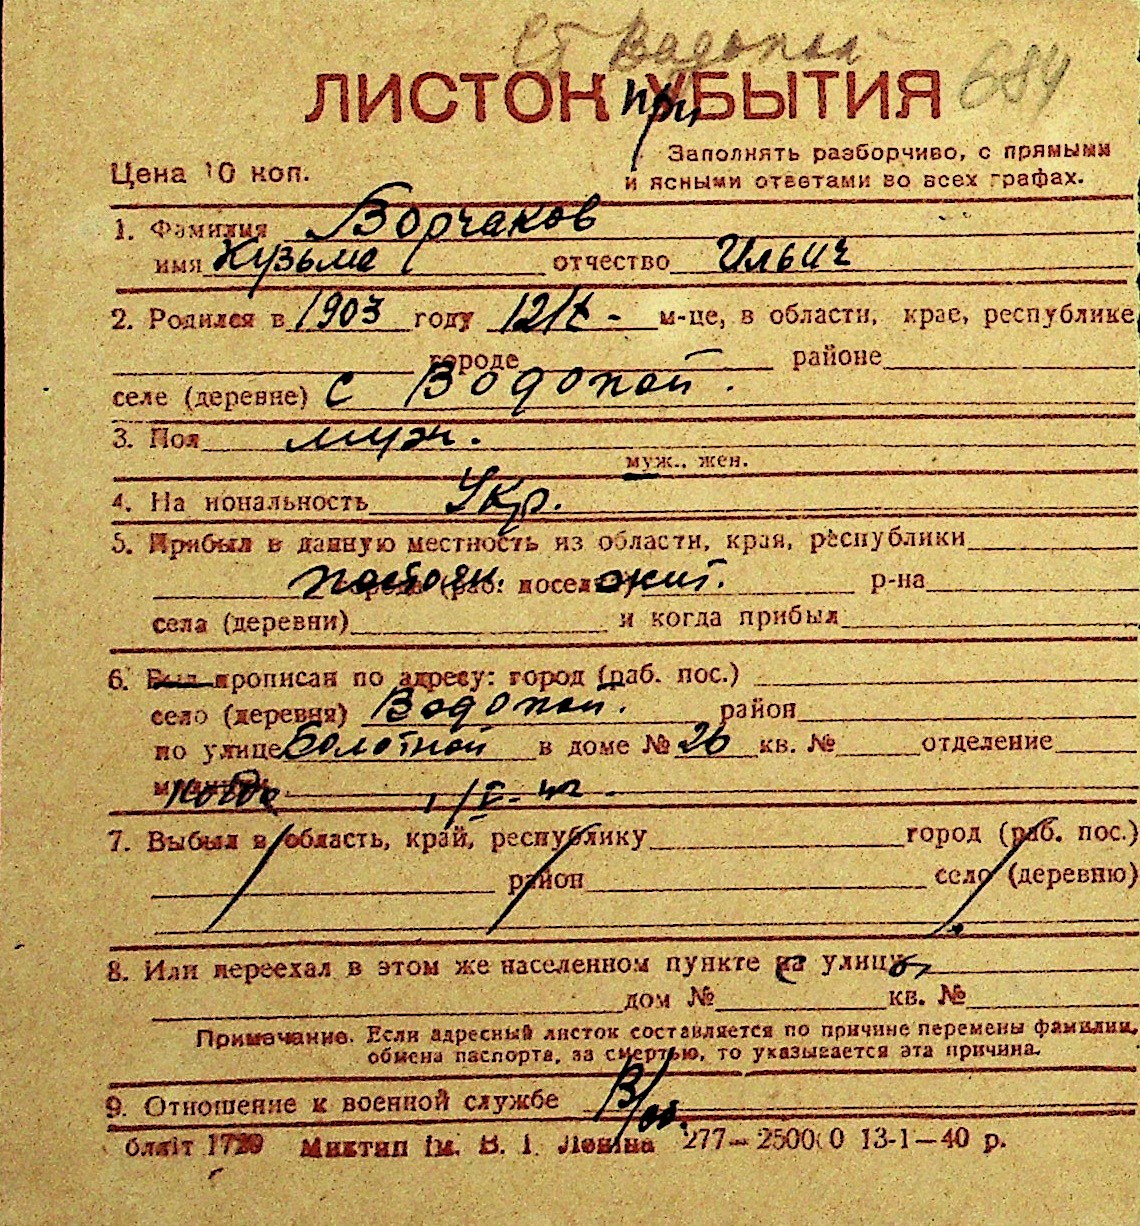 Ст Водопой
ЛИСТОК при УБЫТИЯ 684
Цена 10 коп.
Заполнять разборчиво, с прямыми
и ясными ответами во всех графах.
1. Фамилия Ворчаков
имя Кузьма отчество Ильич
2. Родился в 1903 году 12/X - м-це, в области, крае, республике
городе районе
селе (деревне) с Водопой.
3. Пол муж.
муж., жен.
4. Национальность Укр.
5. Прибыл в данную местность из области, края, республики
постоян. жит. города (раб. поселка) р-на
села (деревни) и когда прибыл
6. Был прописан по адресу: город (раб. пос.)
село (деревня) Водопой. район
по улице Болотной в доме № 26 кв. № отделение
когда
7. Выбыл в область, край, республику город (раб. пос.)
район село (деревню)
8. Или переехал в этом же населенном пункте с улицы
дом № кв. №
Примечание. Если адресный листок составляется по причине перемены фамилии,
обмена паспорта, за смертью, то указывается эта причина.
9. Отношение к военной службе В/об.
бляіт 1720 Миктип ім. В. І. Леніна 277—25000 13-1—40 р.